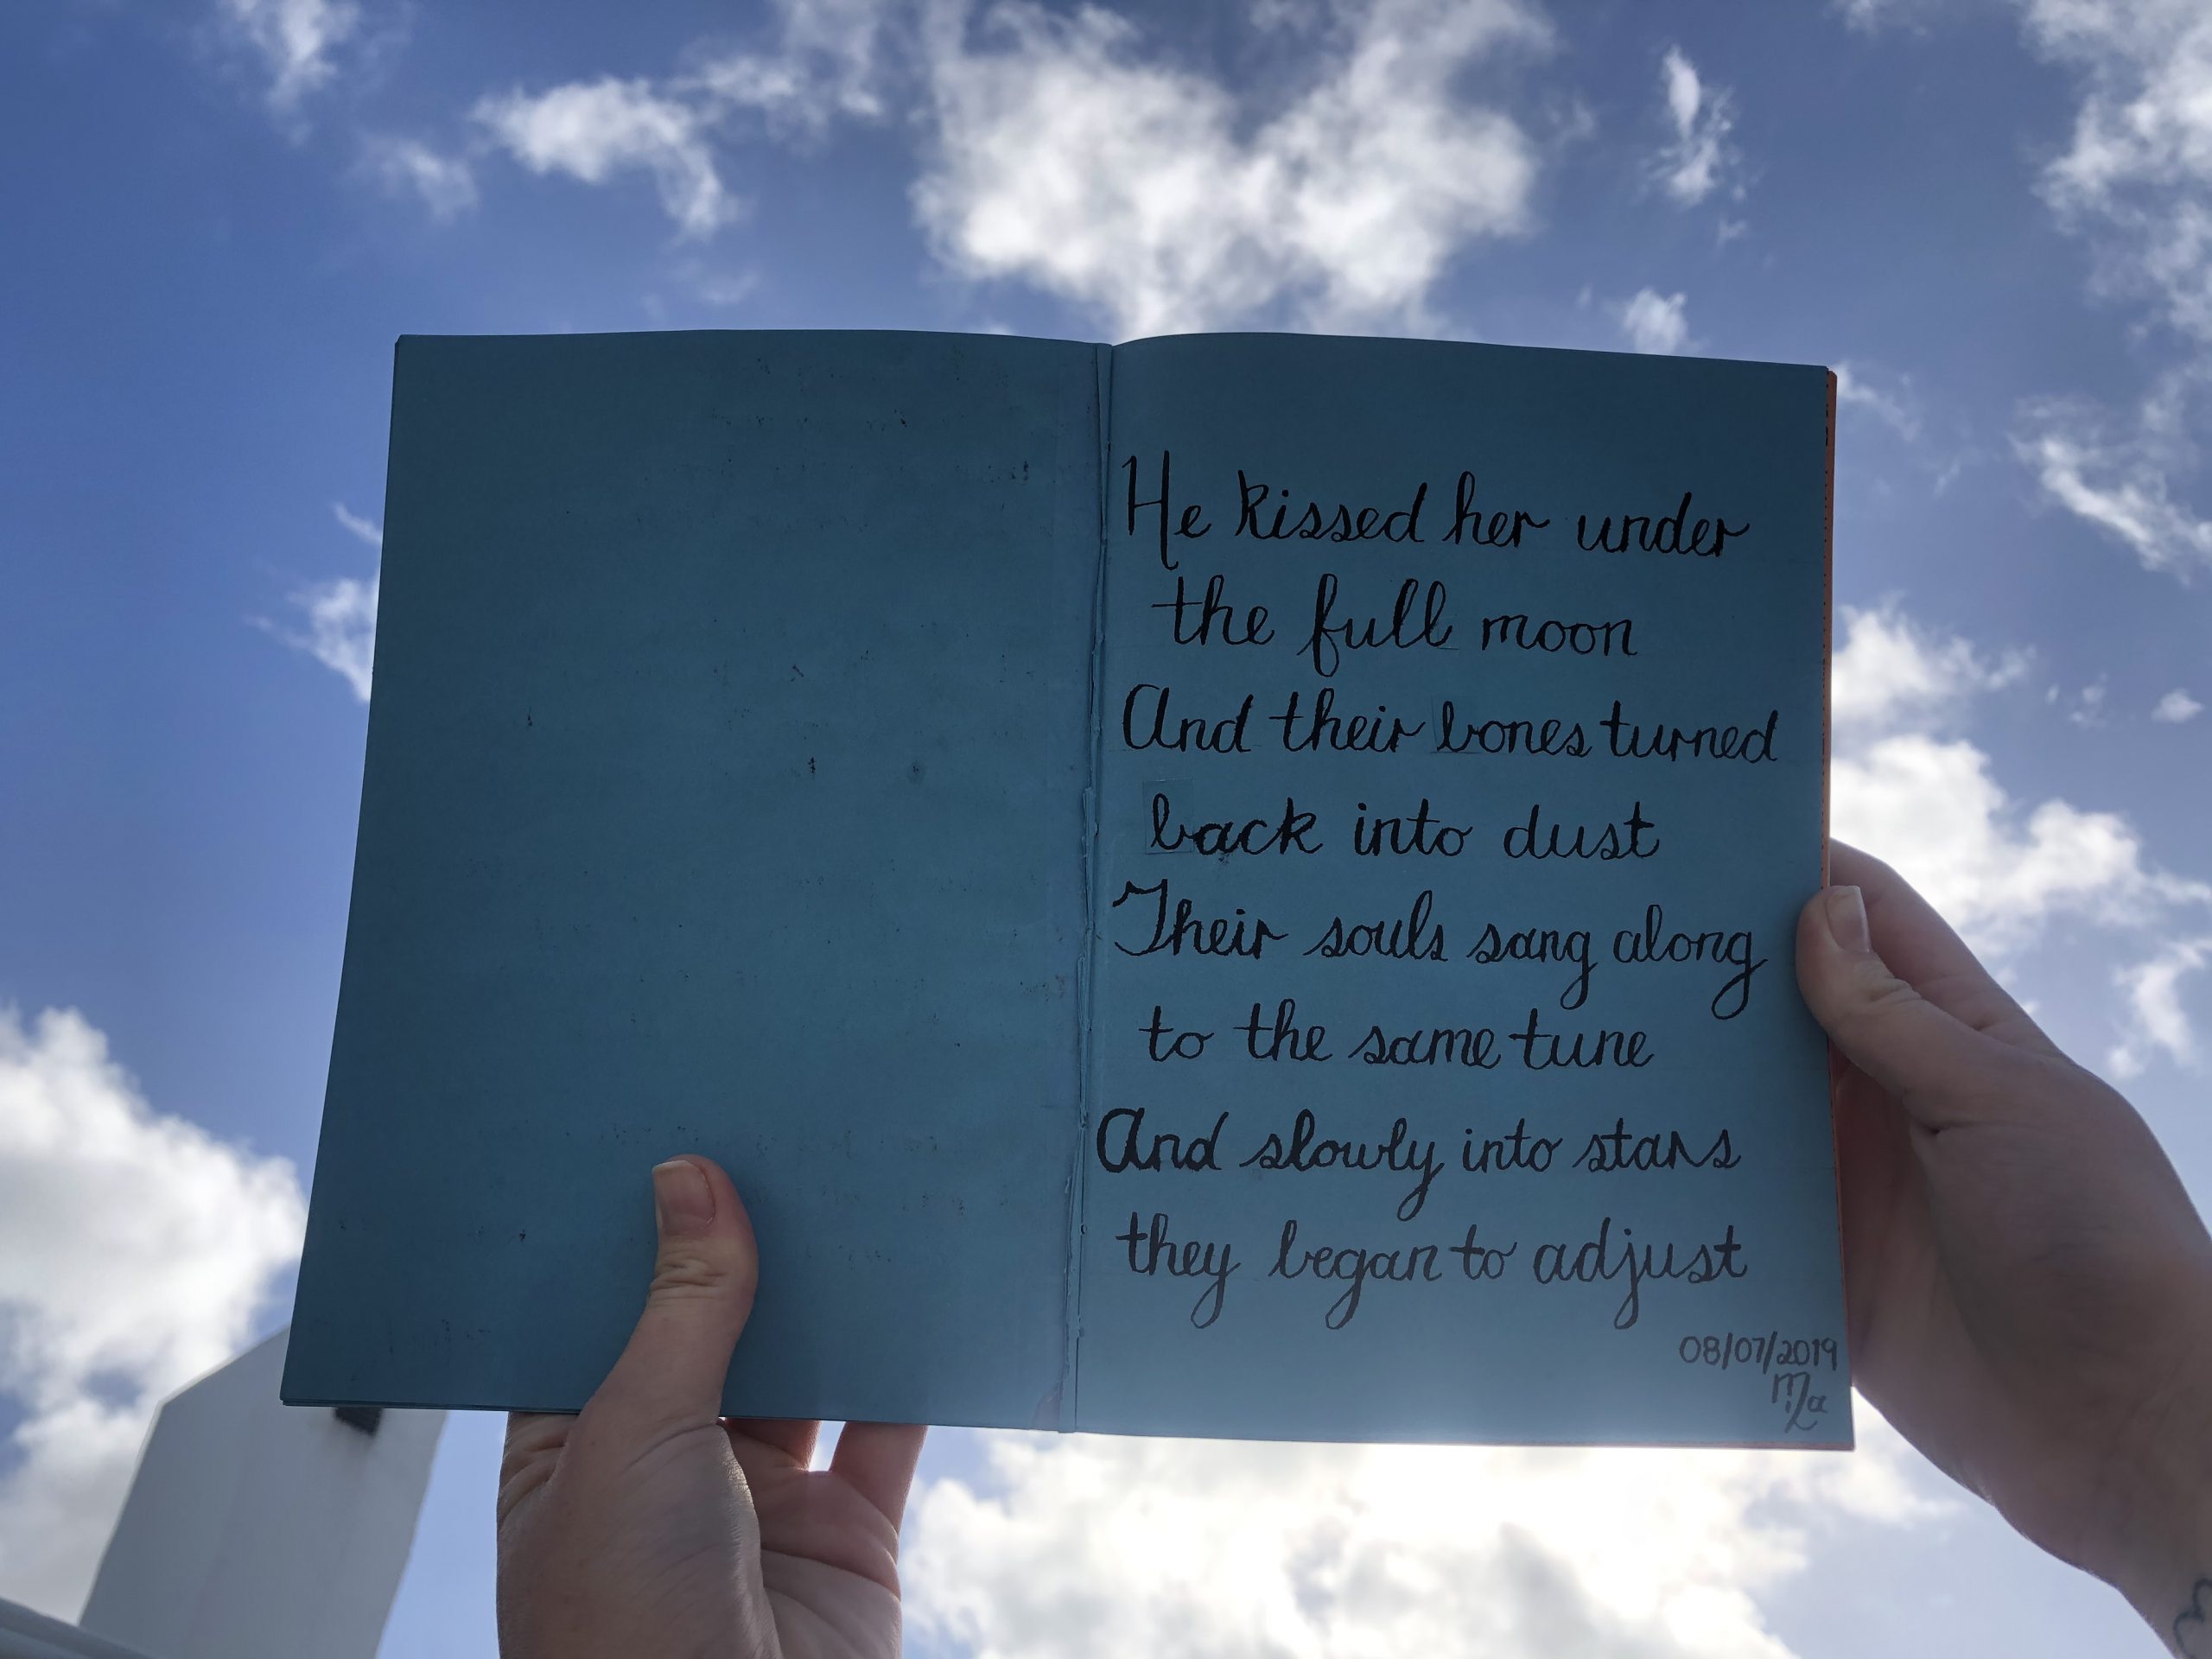 He kissed her under
the full moon
And their bones turned
back into dust
Their souls sang along
to the same tune
And slowly into stars
they began to adjust
08/07/2019